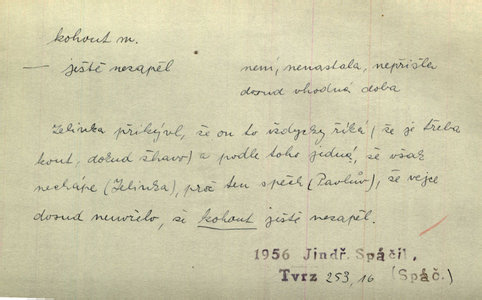 kohout m.
— ještě nezapěl
není, nenastala, nepřišla
dosud vhodná doba
Zelinka přikývl, že on to vždycky říká (že je třeba
kout, dokud žhavo) a podle toho jedná, že však
nechápe (Zelinka), proč ten spěch (Pavlův), že vejce
dosud neuvřelo, že kohout ještě nezapěl.
1956 Jindř. Spáčil,
Tvrz 253,16 (Spáč.)